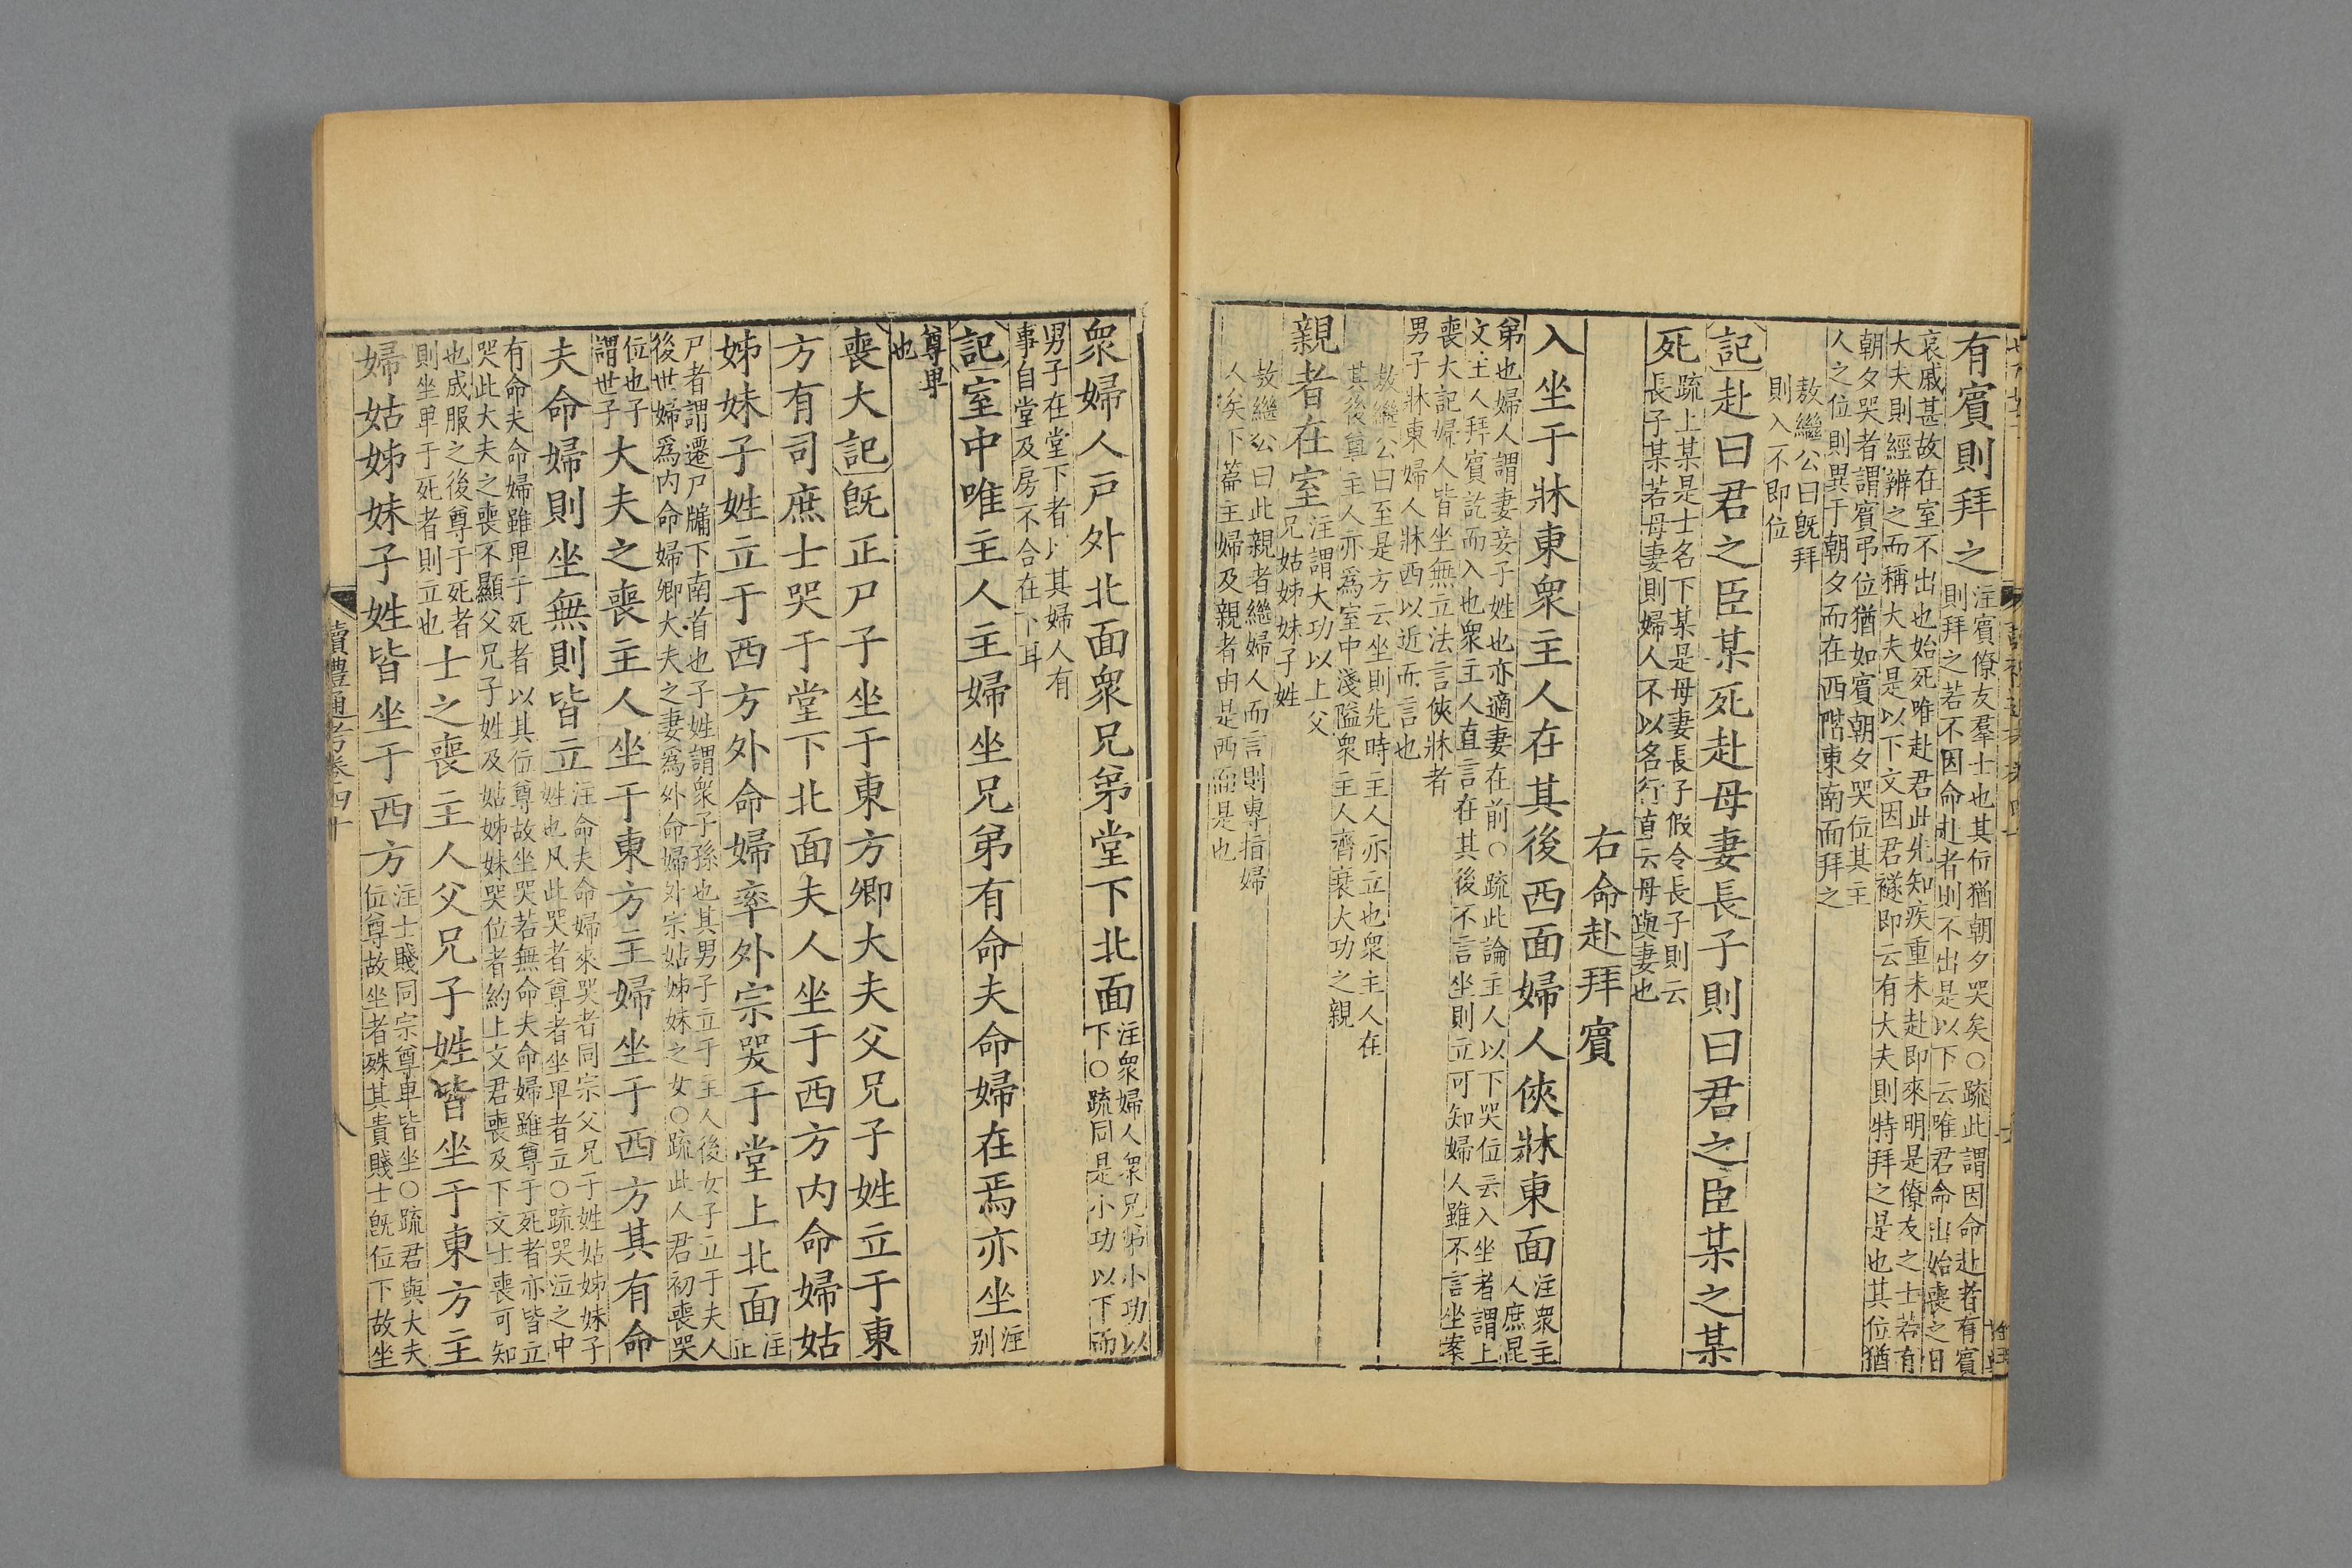 有賓則拜之注賓僚友羣士也其位猶朝夕哭矣○疏此謂因命赴者有賓
則拜之若不因命赴者則不出是以下云唯君命出始喪之日
哀戚甚故在室不出也始死唯赴君此先知疾重未赴即來明是僚友之士若有
大夫則經辨之而稱大夫是以下文因君襚即云有大夫則特拜之是也其位猶
朝夕哭者謂賓弔位猶如賓朝夕哭位其主
人之位則異于朝夕而在西階東南面拜之
敖繼公曰旣拜
則入不即位
記赴曰君之臣某死赴母妻長子則曰君之臣某之某
死疏上某是士名下某是母妻長子假令長子則云
長子某若母妻則婦人不以名行直云母與妻也
右命赴拜賓
入坐于牀東衆主人在其後西面婦人俠牀東面注衆主
人庶昆
弟也婦人謂妻妾子姓也亦適妻在前○疏此論主人以下哭位云入坐者謂上
文主人拜賓訖而入也衆主人直言在其後不言坐則立可知婦人雖不言坐案
喪大記婦人皆坐無立法言俠牀者
男子牀東婦人牀西以近而言也
敖繼公曰至是方云坐則先時主人亦立也衆主人在
其後尊主人亦爲室中淺隘衆主人齊衰大功之親
親者在室注謂大功以上父
兄姑姊妹子姓
敖繼公曰此親者繼婦人而言則專指婦
人矣下篇主婦及親者由是西面是也
衆婦人戸外北面衆兄弟堂下北面注衆婦人衆兄弟小功以
下○疏同是小功以下而
男子在堂下者以其婦人有
事自堂及房不合在下耳
記室中唯主人主婦坐兄弟有命夫命婦在焉亦坐注
别
尊卑
也
喪大記旣正尸子坐于東方卿大夫父兄子姓立于東
方有司庶士哭于堂下北面夫人坐于西方内命婦姑
姊妹子姓立于西方外命婦率外宗哭于堂上北面注
正
尸者謂遷尸牖下南首也子姓謂衆子孫也其男子立于主人後女子立于夫人
後世婦爲内命婦卿大夫之妻爲外命婦外宗姑姊妹之女○疏此人君初喪哭
位也子
謂世子大夫之喪主人坐于東方主婦坐于西方其有命
夫命婦則坐無則皆立注命夫命婦來哭者同宗父兄子姓姑姊妹子
姓也凡此哭者尊者坐卑者立○疏哭泣之中
有命夫命婦雖卑于死者以其位尊故坐哭若無命夫命婦雖尊于死者亦皆立
哭此大夫之喪不顯父兄子姓及姑姊妹哭位者約上文君喪及下文士喪可知
也成服之後尊于死者
則坐卑于死者則立也士之喪主人父兄子姓皆坐于東方主
婦姑姊妹子姓皆坐于西方注士賤同宗尊卑皆坐○疏君與大夫
位尊故坐者殊其貴賤士旣位下故坐
讀禮通考卷四十
八